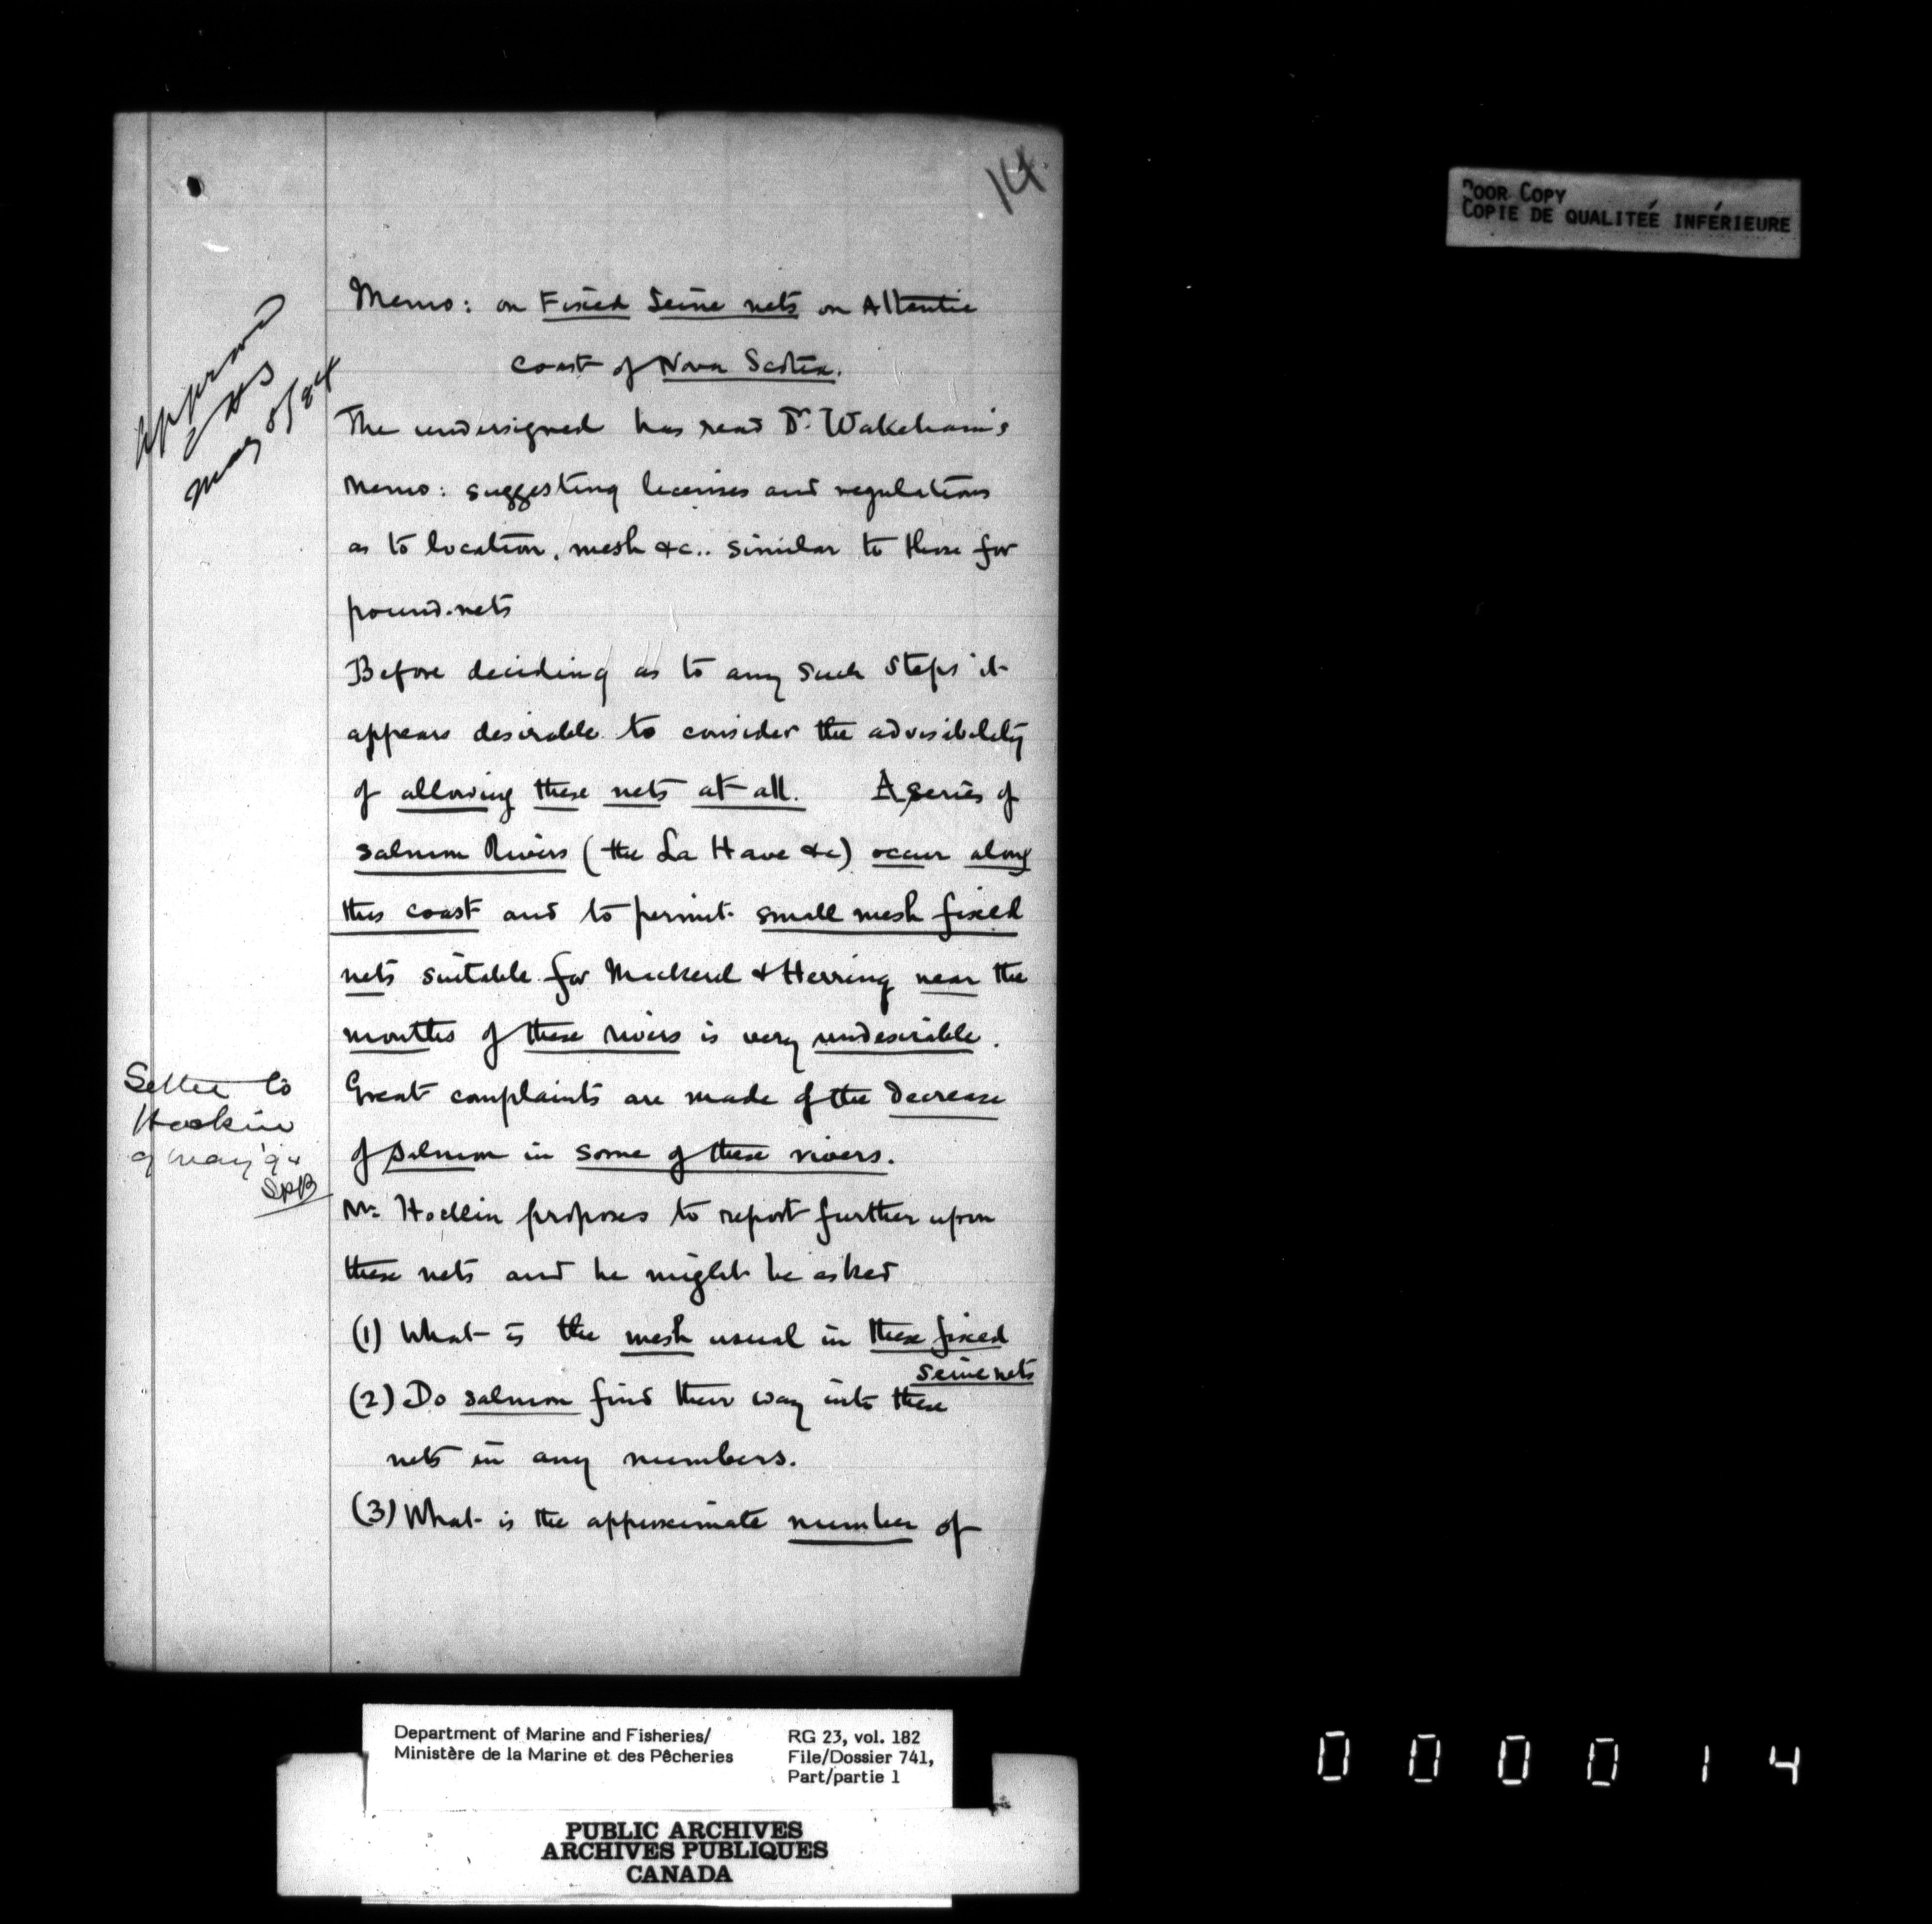 14.
POOR COPY
COPIE DE QUALITEÉ INFÉRIEURE
Memo: on Fixed Seine nets on Atlantic
Coast of Nova Scotia.
Approved
May 8/94
The undersigned has read Dr. Wakeham's
Memo: suggesting licenses and regulations
as to location, mesh &c.. similar to those for
pound-nets
Before deciding as to any such steps it
appears desirable to consider the advisibility
of allowing these nets at all. A series of
salmon Rivers (the La Have &c) occur along
this coast and to permit small mesh fixed
nets suitable for Mackerel & Herring near the
mouths of these rivers is very undesirable.
Great complaints are made of the decrease
of Salmon in some of these rivers.
Letter to
9 May '94
Mr Hocklin proposes to report further upon
these nets and he might be asked
(1) What is the mesh usual in these fixed
seine nets
(2) Do salmon find their way into these
nets in any numbers.
(3) What is the approximate number of
Department of Marine and Fisheries/
Ministère de la Marine et des Pêcheries
RG 23, vol. 182
File/Dossier 741,
Part/partie 1
PUBLIC ARCHIVES
ARCHIVES PUBLIQUES
CANADA
000014